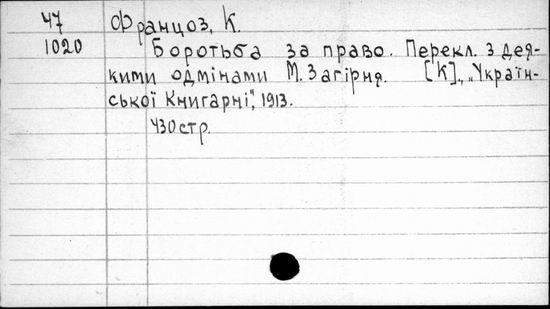 47 Француз, К.
1020 Боротьба за право. Перекл. з дея-
кими одмінами М. Загірня. [К]., „Україн-
ської Книгарні", 1913.
430 стр.